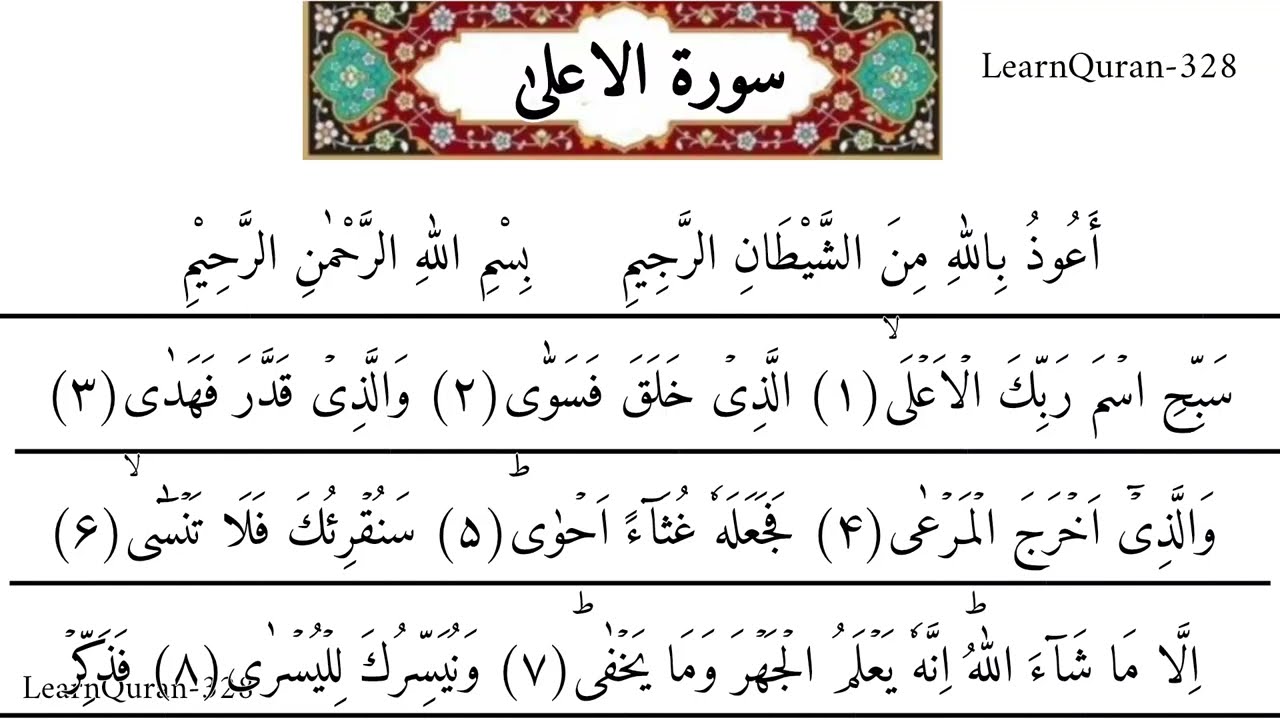 سورة الاعلىٰ
LearnQuran-328
أَعُوذُ بِاللّٰهِ مِنَ الشَّيْطَانِ الرَّجِيمِ بِسْمِ اللّٰهِ الرَّحْمٰنِ الرَّحِيْمِ
سَبِّحِ اسْمَ رَبِّكَ الْاَعْلَىۙ (۱) الَّذِىْ خَلَقَ فَسَوّٰى (۲) وَالَّذِىْ قَدَّرَ فَهَدٰى (۳)
وَالَّذِىْٓ اَخْرَجَ الْمَرْعٰى (۴) فَجَعَلَهٗ غُثَآءً اَحْوٰىؕ (۵) سَنُقْرِئُكَ فَلَا تَنْسٰٓىۙ (۶)
اِلَّا مَا شَآءَ اللّٰهُؕ اِنَّهٗ يَعْلَمُ الْجَهْرَ وَمَا يَخْفٰىؕ (۷) وَنُيَسِّرُكَ لِلْيُسْرٰى (۸) فَذَكِّرْ
LearnQuran-328